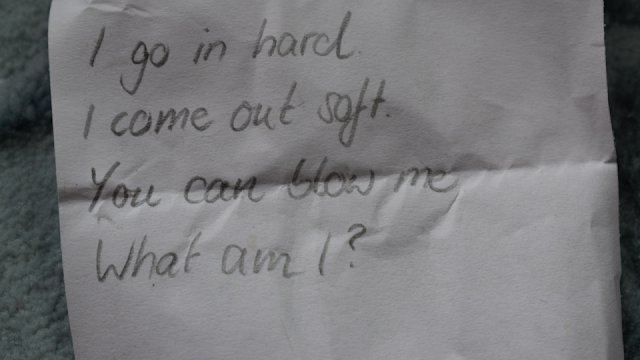 I go in hard.
I come out soft.
You can blow me
What am I?